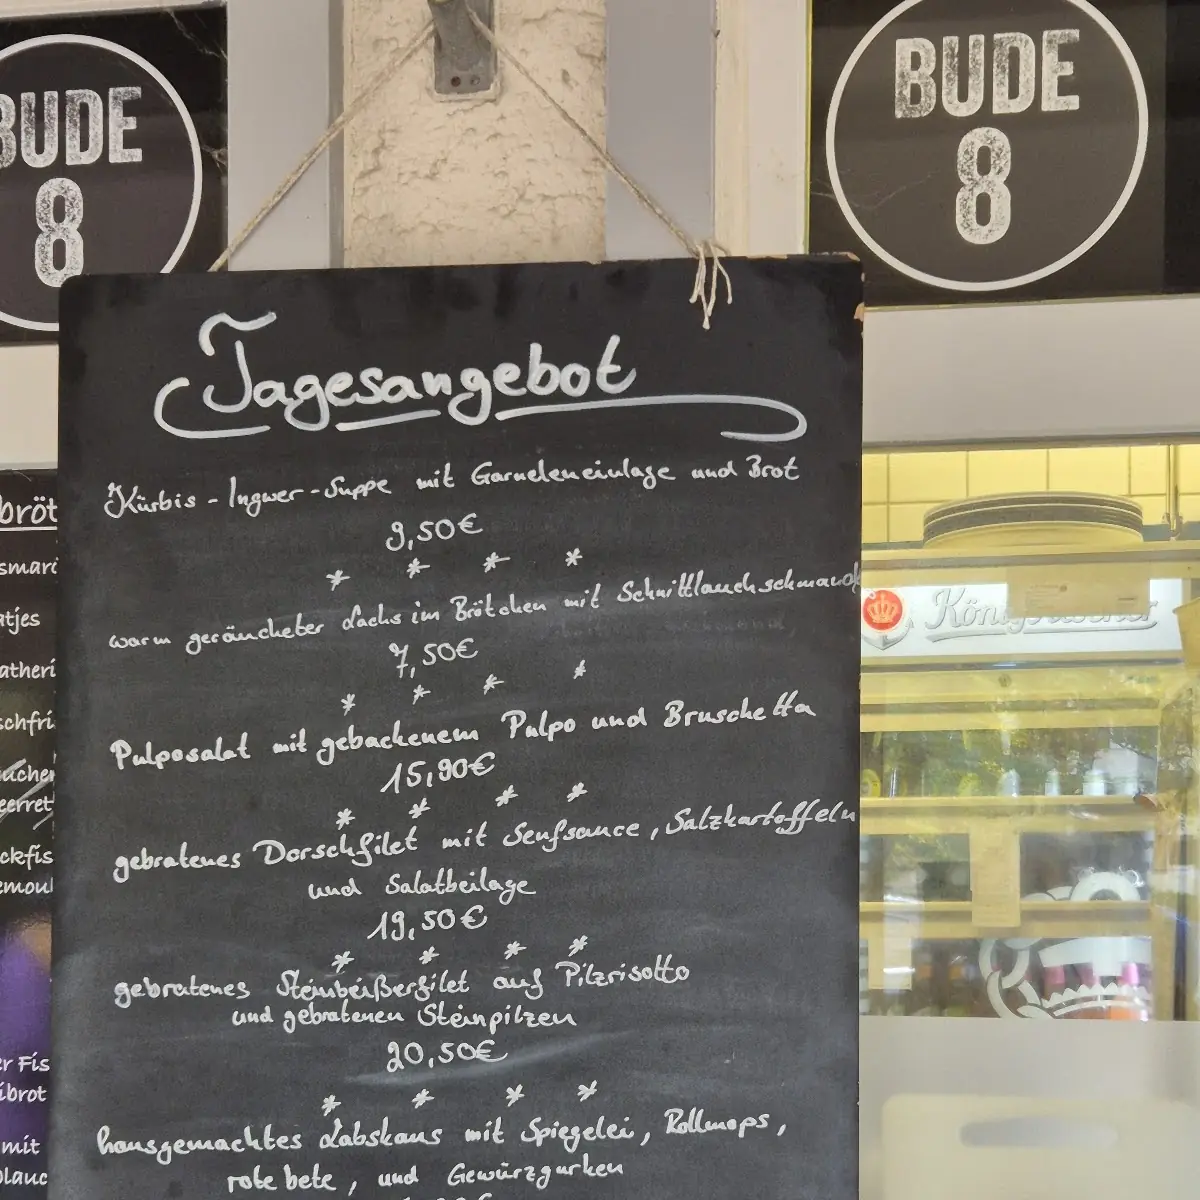 BUDE
8
BUDE
8
Tagesangebot
Kürbis - Ingwer - Suppe mit Garneleneinlage und Brot
9,50€
* * * *
warm geräucheter Lachs im Brötchen mit Schnittlauchschmand
7,50€
* * * *
Pulposalat mit gebackenem Pulpo und Bruschetta
15,90€
* * * *
gebratenes Dorschfilet mit Senfsauce, Salzkartoffeln
und Salatbeilage
19,50€
* * * *
gebratenes Steinbeißerfilet auf Pilzrisotto
und gebratenen Steinpilzen
20,50€
* * * *
hausgemachtes Labskaus mit Spiegelei, Rollmops,
rote bete, und Gewürzgurken
bröt
smarc
tjes
atheri
schfri
ucher
eerret
ckfis
emoul
er Fis
ibrot
mit
blauc